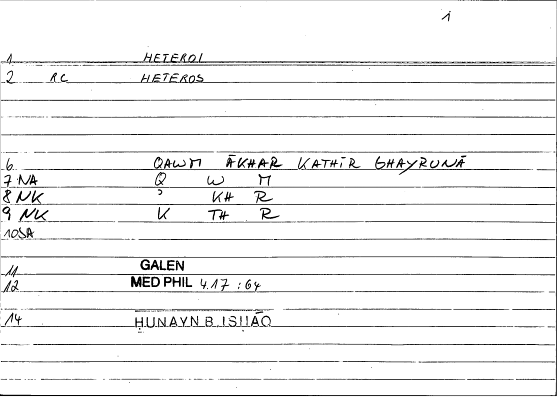 1
1 HETEROI
2 RC HETEROS
6 QAWM ĀKHAR KATHĪR GHAYRUNĀ
7 NA Q W M
8 NK ʾ KH R
9 NK K TH R
10 SA
11 GALEN
12 MED PHIL 4.17 : 64
14 ḤUNAYN B. ISḤĀQ